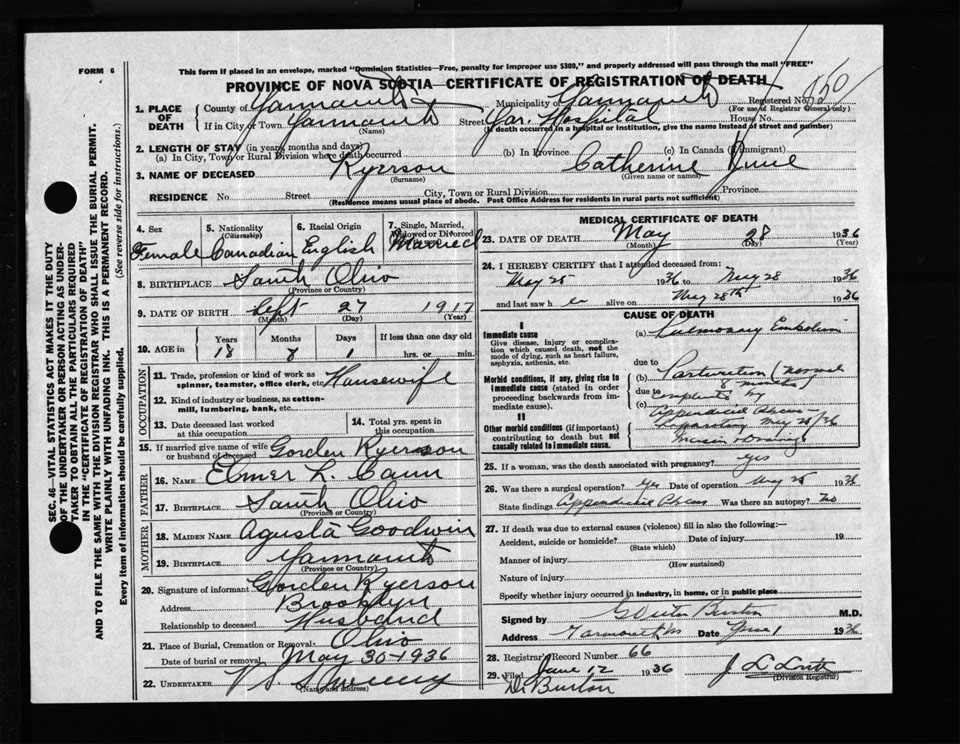 FORM 6
This form if placed in an envelope, marked "Dominion Statistics—Free, penalty for improper use $300," and properly addressed will pass through the mail "FREE"
PROVINCE OF NOVA SCOTIA—CERTIFICATE OF REGISTRATION OF DEATH
1. PLACE OF DEATH County of Yarmouth Municipality of Yarmouth Registered No.
(For use of Registrar General only)
If in City or Town Yarmouth Street Yar. Hospital House No.
(Name) (If death occurred in a hospital or institution, give the name instead of street and number)
2. LENGTH OF STAY (in years, months and days)
(a) In City, Town or Rural Division where death occurred (b) In Province (c) In Canada (if immigrant)
3. NAME OF DECEASED Ryerson Catherine
(Surname) (Given name or names)
RESIDENCE No. Street City, Town or Rural Division Province
(Residence means usual place of abode. Post Office Address for residents in rural parts not sufficient)
4. Sex Female
5. Nationality (Citizenship) Canadian
6. Racial Origin English
7. Single, Married, Widowed or Divorced Married
8. BIRTHPLACE South Ohio
(Province or Country)
9. DATE OF BIRTH Sept 27 1917
(Month) (Day) (Year)
10. AGE in Years Months Days If less than one day old
18 8 1 hrs. or min.
OCCUPATION
11. Trade, profession or kind of work as spinner, teamster, office clerk, etc. Housewife
12. Kind of industry or business, as cotton-mill, lumbering, bank, etc.
13. Date deceased last worked at this occupation
14. Total yrs. spent in this occupation
15. If married give name of wife or husband of deceased Gorden Ryerson
FATHER
16. NAME Elmer L. Cann
17. BIRTHPLACE South Ohio
(Province or Country)
MOTHER
18. MAIDEN NAME Agusta Goodwin
19. BIRTHPLACE Yarmouth
(Province or Country)
20. Signature of informant Gorden Ryerson
Address Brooklyn
Relationship to deceased Husband
21. Place of Burial, Cremation or Removal Ohio
Date of burial or removal May 30-1936
22. UNDERTAKER
(Name and address)
MEDICAL CERTIFICATE OF DEATH
23. DATE OF DEATH May 28 1936
(Month) (Day) (Year)
24. I HEREBY CERTIFY that I attended deceased from:
May 25 1936 to May 28 1936
and last saw her alive on May 28th 1936
CAUSE OF DEATH
I
Immediate cause
Give disease, injury or complication which caused death, not the mode of dying, such as heart failure, asphyxia, asthenia, etc.
(a) Pulmonary Embolism
due to
Morbid conditions, if any, giving rise to immediate cause (stated in order proceeding backwards from immediate cause).
(b) Parturition (normal
8 months)
due to
(c) by
Appendicial Abcess
May 25/36
II
Other morbid conditions (if important) contributing to death but not causally related to immediate cause.
25. If a woman, was the death associated with pregnancy? yes
26. Was there a surgical operation? yes Date of operation May 25 1936
State findings Appendicial Abcess Was there an autopsy? No
27. If death was due to external causes (violence) fill in also the following:—
Accident, suicide or homicide? Date of injury 19
(State which)
Manner of injury
(How sustained)
Nature of injury
Specify whether injury occurred in industry, in home, or in public place
Signed by Burton M.D.
Address Yarmouth NS Date June 1 1936
28. Registrar's Record Number 66
29. Filed June 12 1936
(Division Registrar)
Dr Burton
SEC. 46—VITAL STATISTICS ACT MAKES IT THE DUTY
OF THE UNDERTAKER OR PERSON ACTING AS UNDER-
TAKER TO OBTAIN ALL THE PARTICULARS REQUIRED
IN THE "CERTIFICATE OF REGISTRATION OF DEATH"
AND TO FILE THE SAME WITH THE DIVISION REGISTRAR WHO SHALL ISSUE THE BURIAL PERMIT.
WRITE PLAINLY WITH UNFADING INK. THIS IS A PERMANENT RECORD.
Every item of information should be carefully supplied. (See reverse side for instructions.)